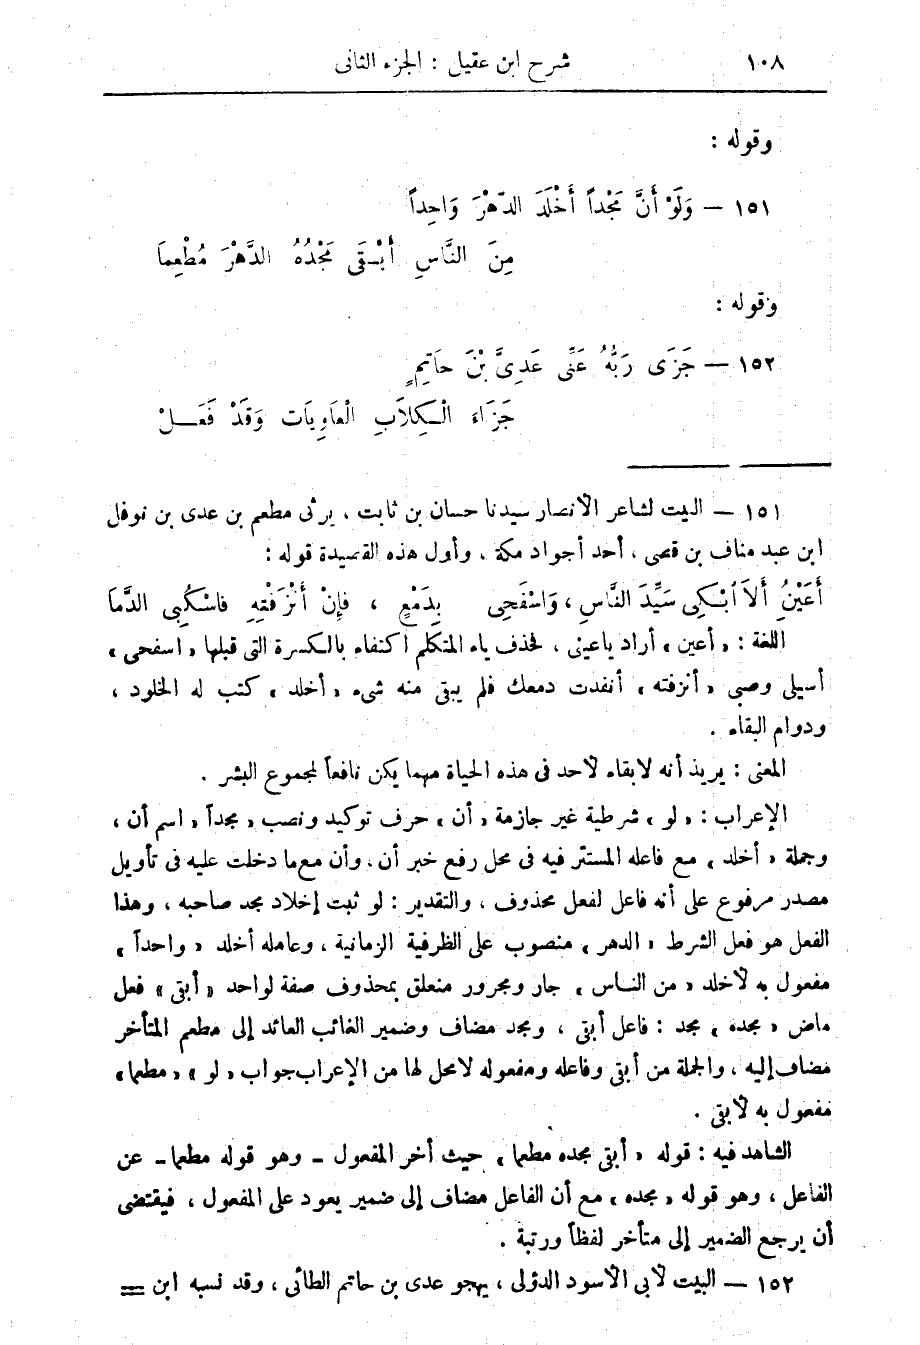 ١٠٨ شرح ابن عقيل : الجزء الثانى
وقوله :
١٥١ — وَلَوْ أَنَّ مَجْداً أَخْلَدَ الدَّهْرَ وَاحِداً
مِنَ النَّاسِ أَبْـقَى مَجْدُهُ الدَّهْرَ مُطْعِمَا
وقوله :
١٥٢ — جَزَى رَبُّهُ عَنِّى عَدِىَّ بْنَ حَاتِمٍ
جَزَاءَ الْـكِلاَبِ الْعَاوِيَاتِ وَقَدْ فَعَـــلْ
١٥١ — البيت لشاعر الأنصار سيدنا حسان بن ثابت ، يرثى مطعم بن عدى بن نوفل
ابن عبد مناف بن قصى ، أحد أجواد مكة ، وأول هذه القصيدة قوله :
أَعَيْنُِ أَلاَ ٱبْكِى سَيِّدَ النَّاسِ ، وَاسْفَحِى بِدَمْعٍ ، فَإِنْ أَنْزَفْتِهِ فَاسْكُبِى الدَّمَا
اللغة : « أعين » أراد ياعينى ، فحذف ياء المتكلم اكتفاء بالكسرة التى قبلها « اسفحى »
أسيلى وصبى « أنزفته » أنفدت دمعك فلم يبق منه شىء « أخلد » كتب له الخلود ،
ودوام البقاء .
المعنى : يريد أنه لابقاء لأحد فى هذه الحياة مهما يكن نافعاً لمجموع البشر .
الإعراب : « لو » شرطية غير جازمة « أن » حرف توكيد ونصب « مجداً » اسم أن ،
وجملة « أخلد » مع فاعله المستتر فيه فى محل رفع خبر أن ، وأن مع ما دخلت عليه فى تأويل
مصدر مرفوع على أنه فاعل لفعل محذوف ، والتقدير : لو ثبت إخلاد مجد صاحبه ، وهذا
الفعل هو فعل الشرط « الدهر » منصوب على الظرفية الزمانية ، وعامله أخلد « واحداً »
مفعول به لأخلد « من النـاس » جار ومجرور متعلق بمحذوف صفة لواحد « أبقى » فعل
ماض « مجده » مجد : فاعل أبقى ، ومجد مضاف وضمير الغائب العائد إلى مطعم المتأخر
مضاف إليه ، والجملة من أبقى وفاعله ومفعوله لامحل لها من الإعراب جواب « لو » « مطعما »
مفعول به لأبقى .
الشاهد فيه : قوله « أبقى مجده مطعما » حيث أخر المفعول – وهو قوله مطعما – عن
الفاعل ، وهو قوله « مجده » مع أن الفاعل مضاف إلى ضمير يعود على المفعول ، فيقتضى
أن يرجع الضمير إلى متأخر لفظاً ورتبة .
١٥٢ — البيت لأبى الأسود الدؤلى ، يهجو عدى بن حاتم الطائى ، وقد نسبه ابن =